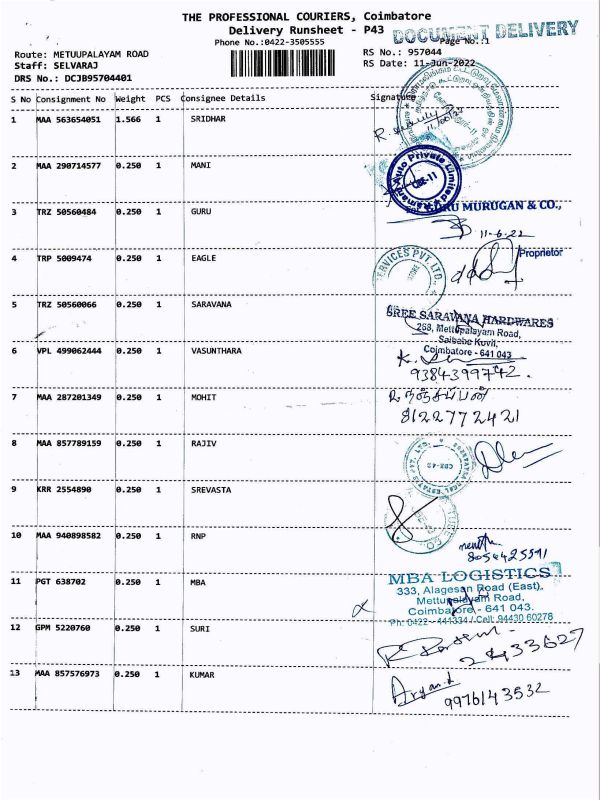 THE PROFESSIONAL COURIERS, Coimbatore
Delivery Runsheet - P43
DOCUMENT DELIVERY
Phone No.:0422-3505555
Page No.:1
Route: METUUPALAYAM ROAD
RS No.: 957044
Staff: SELVARAJ
RS Date: 11-Jun-2022
DRS No.: DCJB95704401
S No Consignment No Weight PCS Consignee Details Signature
1 MAA 563654051 1.566 1 SRIDHAR
2 MAA 290714577 0.250 1 MANI
Auto Private Limited
CBE-11
3 TRZ 50560484 0.250 1 GURU
GURU MURUGAN & CO.,
11-6-22
4 TRP 5009474 0.250 1 EAGLE
Proprietor
SERVICES PVT. LTD.
5 TRZ 50560066 0.250 1 SARAVANA
SREE SARAVANA HARDWARES
268, Mettupalayam Road,
Saibaba Kovil,
Coimbatore - 641 043
6 VPL 499062444 0.250 1 VASUNTHARA
9384399742.
7 MAA 287201349 0.250 1 MOHIT
8122772421
8 MAA 857789159 0.250 1 RAJIV
CBE-43
9 KRR 2554890 0.250 1 SREVASTA
10 MAA 940898582 0.250 1 RNP
8054425591
11 PGT 638702 0.250 1 MBA
MBA LOGISTICS
333, Alagesan Road (East),
Mettupalayam Road,
Coimbatore - 641 043.
Ph: 0422 - 441334 / Cell: 94430 60278
12 GPM 5220760 0.250 1 SURI
2433627
13 MAA 857576973 0.250 1 KUMAR
9976143532